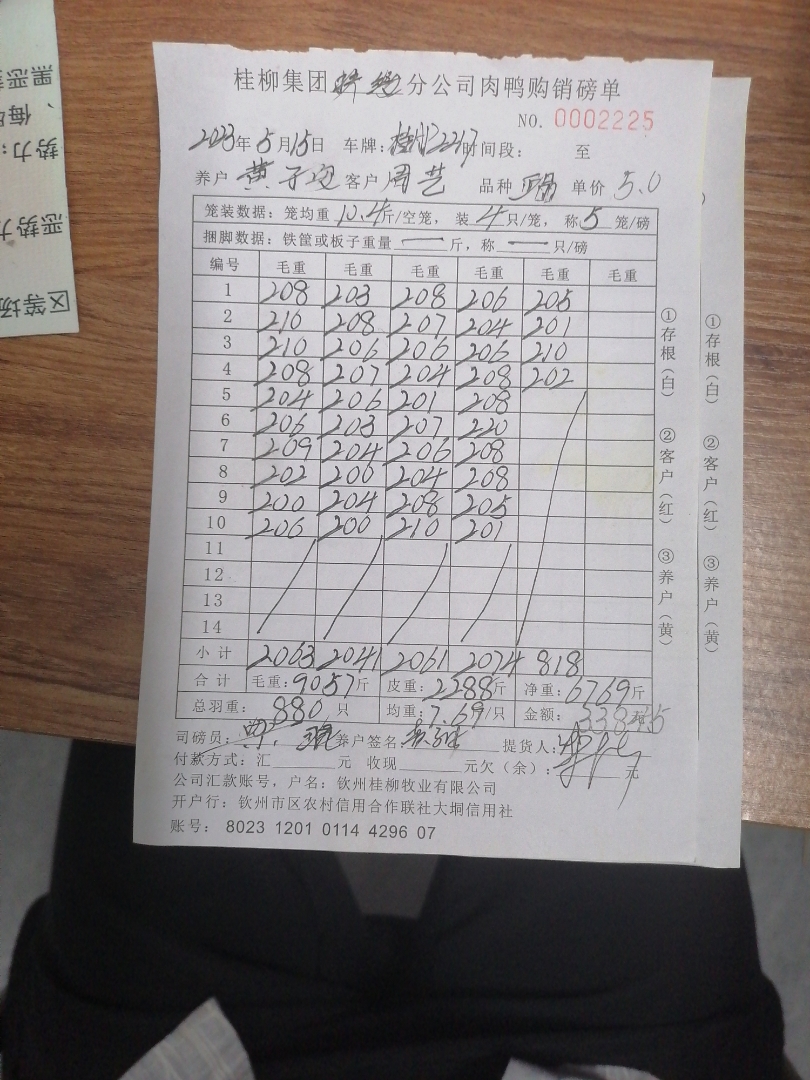 桂柳集团分公司肉鸭购销磅单
NO. 0002225
2023年5月15日 车牌:桂 2217时间段: 至
养户 黄子 客户 周艺 品种 单价 5.0
笼装数据:笼均重 10.4斤/空笼,装 4只/笼,称5 笼/磅
捆脚数据:铁筐或板子重量 — 斤,称 — 只/磅
编号 毛重 毛重 毛重 毛重 毛重 毛重
1 208 203 208 206 205
2 210 208 207 204 201
3 210 206 206 206 210
4 208 207 204 208 202
5 204 206 201 208
6 206 203 207 220
7 209 204 206 208
8 202 200 204 208
9 200 204 208 205
10 206 200 210 201
11
12
13
14
小计 2063 2041 2061 2074 818
合计 毛重:9057斤 皮重:2288斤 净重:6769斤
总羽重: 880 只 均重:7.69/只 金额: 33845
司磅员: 养户签名: 提货人:
付款方式:汇 元 收现 元欠(余): 元
公司汇款账号,户名:钦州桂柳牧业有限公司
开户行:钦州市区农村信用合作联社大垌信用社
账号: 8023 1201 0114 4296 07
①存根(白) ②客户(红) ③养户(黄)
①存根(白) ②客户(红) ③养户(黄)
势力:
恶势力
区等场